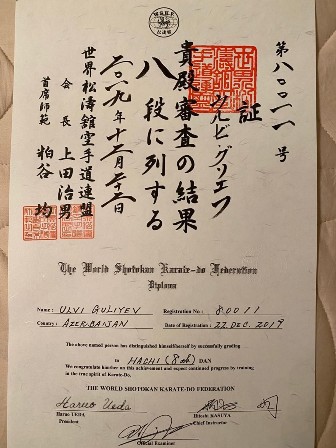 第八〇〇一一号
証
ウルビ・グリエフ
貴殿審査の結果
八段に列する
二〇一九年十二月二十二日
世界松濤館空手道連盟
会長 上田治男
首席師範 粕谷均
The World Shotokan Karate-do Federation
Diploma
Name: ULVI GULIYEV Registration No: 80011
Country: AZERBAIJAN Date of Registration: 22 DEC. 2019
The above named person has distinguished himself/herself by successfully grading
to HACHI (8th) DAN
We congratulate him/her on this achievement and expect continued progress by training
in the true spirit of Karate-Do.
THE WORLD SHOTOKAN KARATE-DO FEDERATION
Haruo Ueda
Haruo UEDA Hitoshi KASUYA
President Chief Instructor
Official Examiner